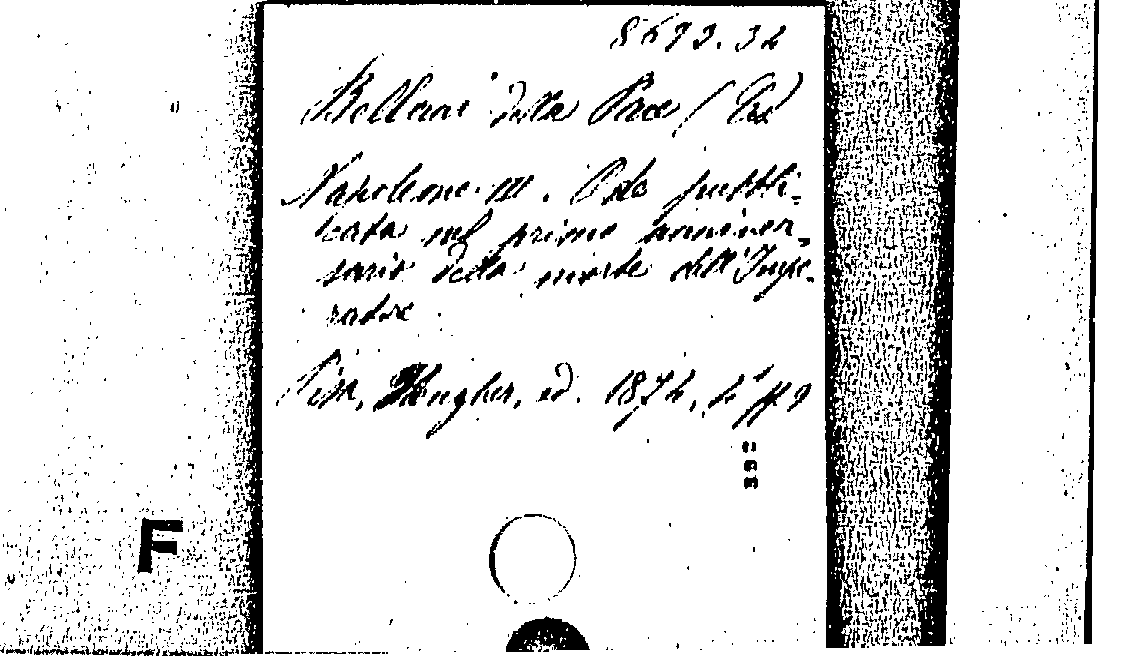 8692.32
Bellani della Pace (
Napoleone III. Ode pubbli-
cata nel primo anniver-
sario della morte dell'Impe-
radore
Pisa, Ungher, ed. 1874, pp. 9
F